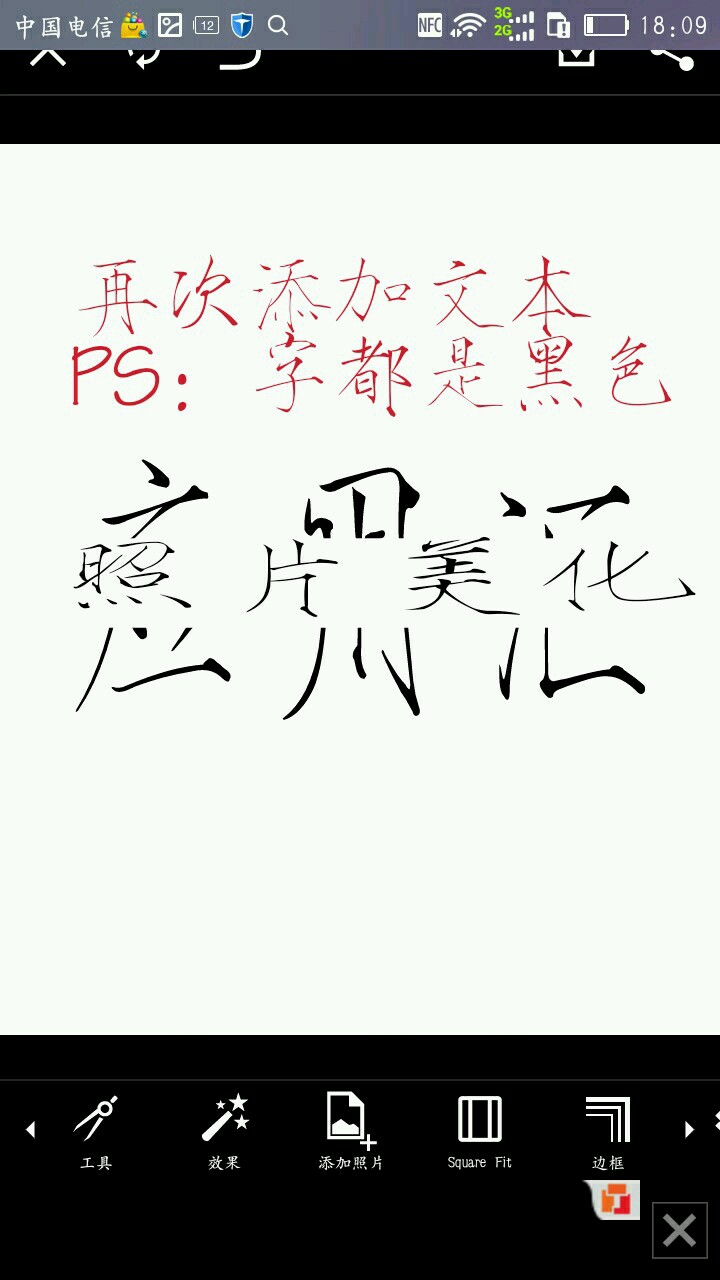 中国电信 12 NFC 3G 2G 18:09
再次添加文本
PS：字都是黑色
应用汇
照片美化
工具 效果 添加照片 Square Fit 边框